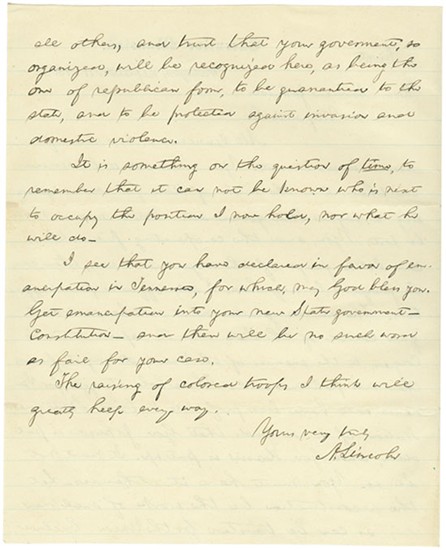 all others, and trust that your government, so
organized, will be recognized here, as being the
one of republican form, to be guaranteed to the
state, and to be protected against invasion and
domestic violence.
It is something on the question of time, to
remember that it can not be known who is next
to occupy the position I now hold, nor what he
will do—
I see that you have declared in favor of em-
ancipation in Tennessee, for which, may God bless you.
Get emancipation into your new State government—
Constitution— and there will be no such word
as fail for your case.
The raising of colored troops I think will
greatly help every way.
Yours very truly
A. Lincoln